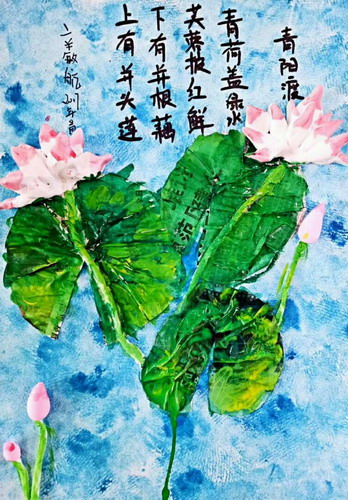 青阳渡
青荷盖渌水
芙蓉披红鲜
下有并根藕
上有并头莲